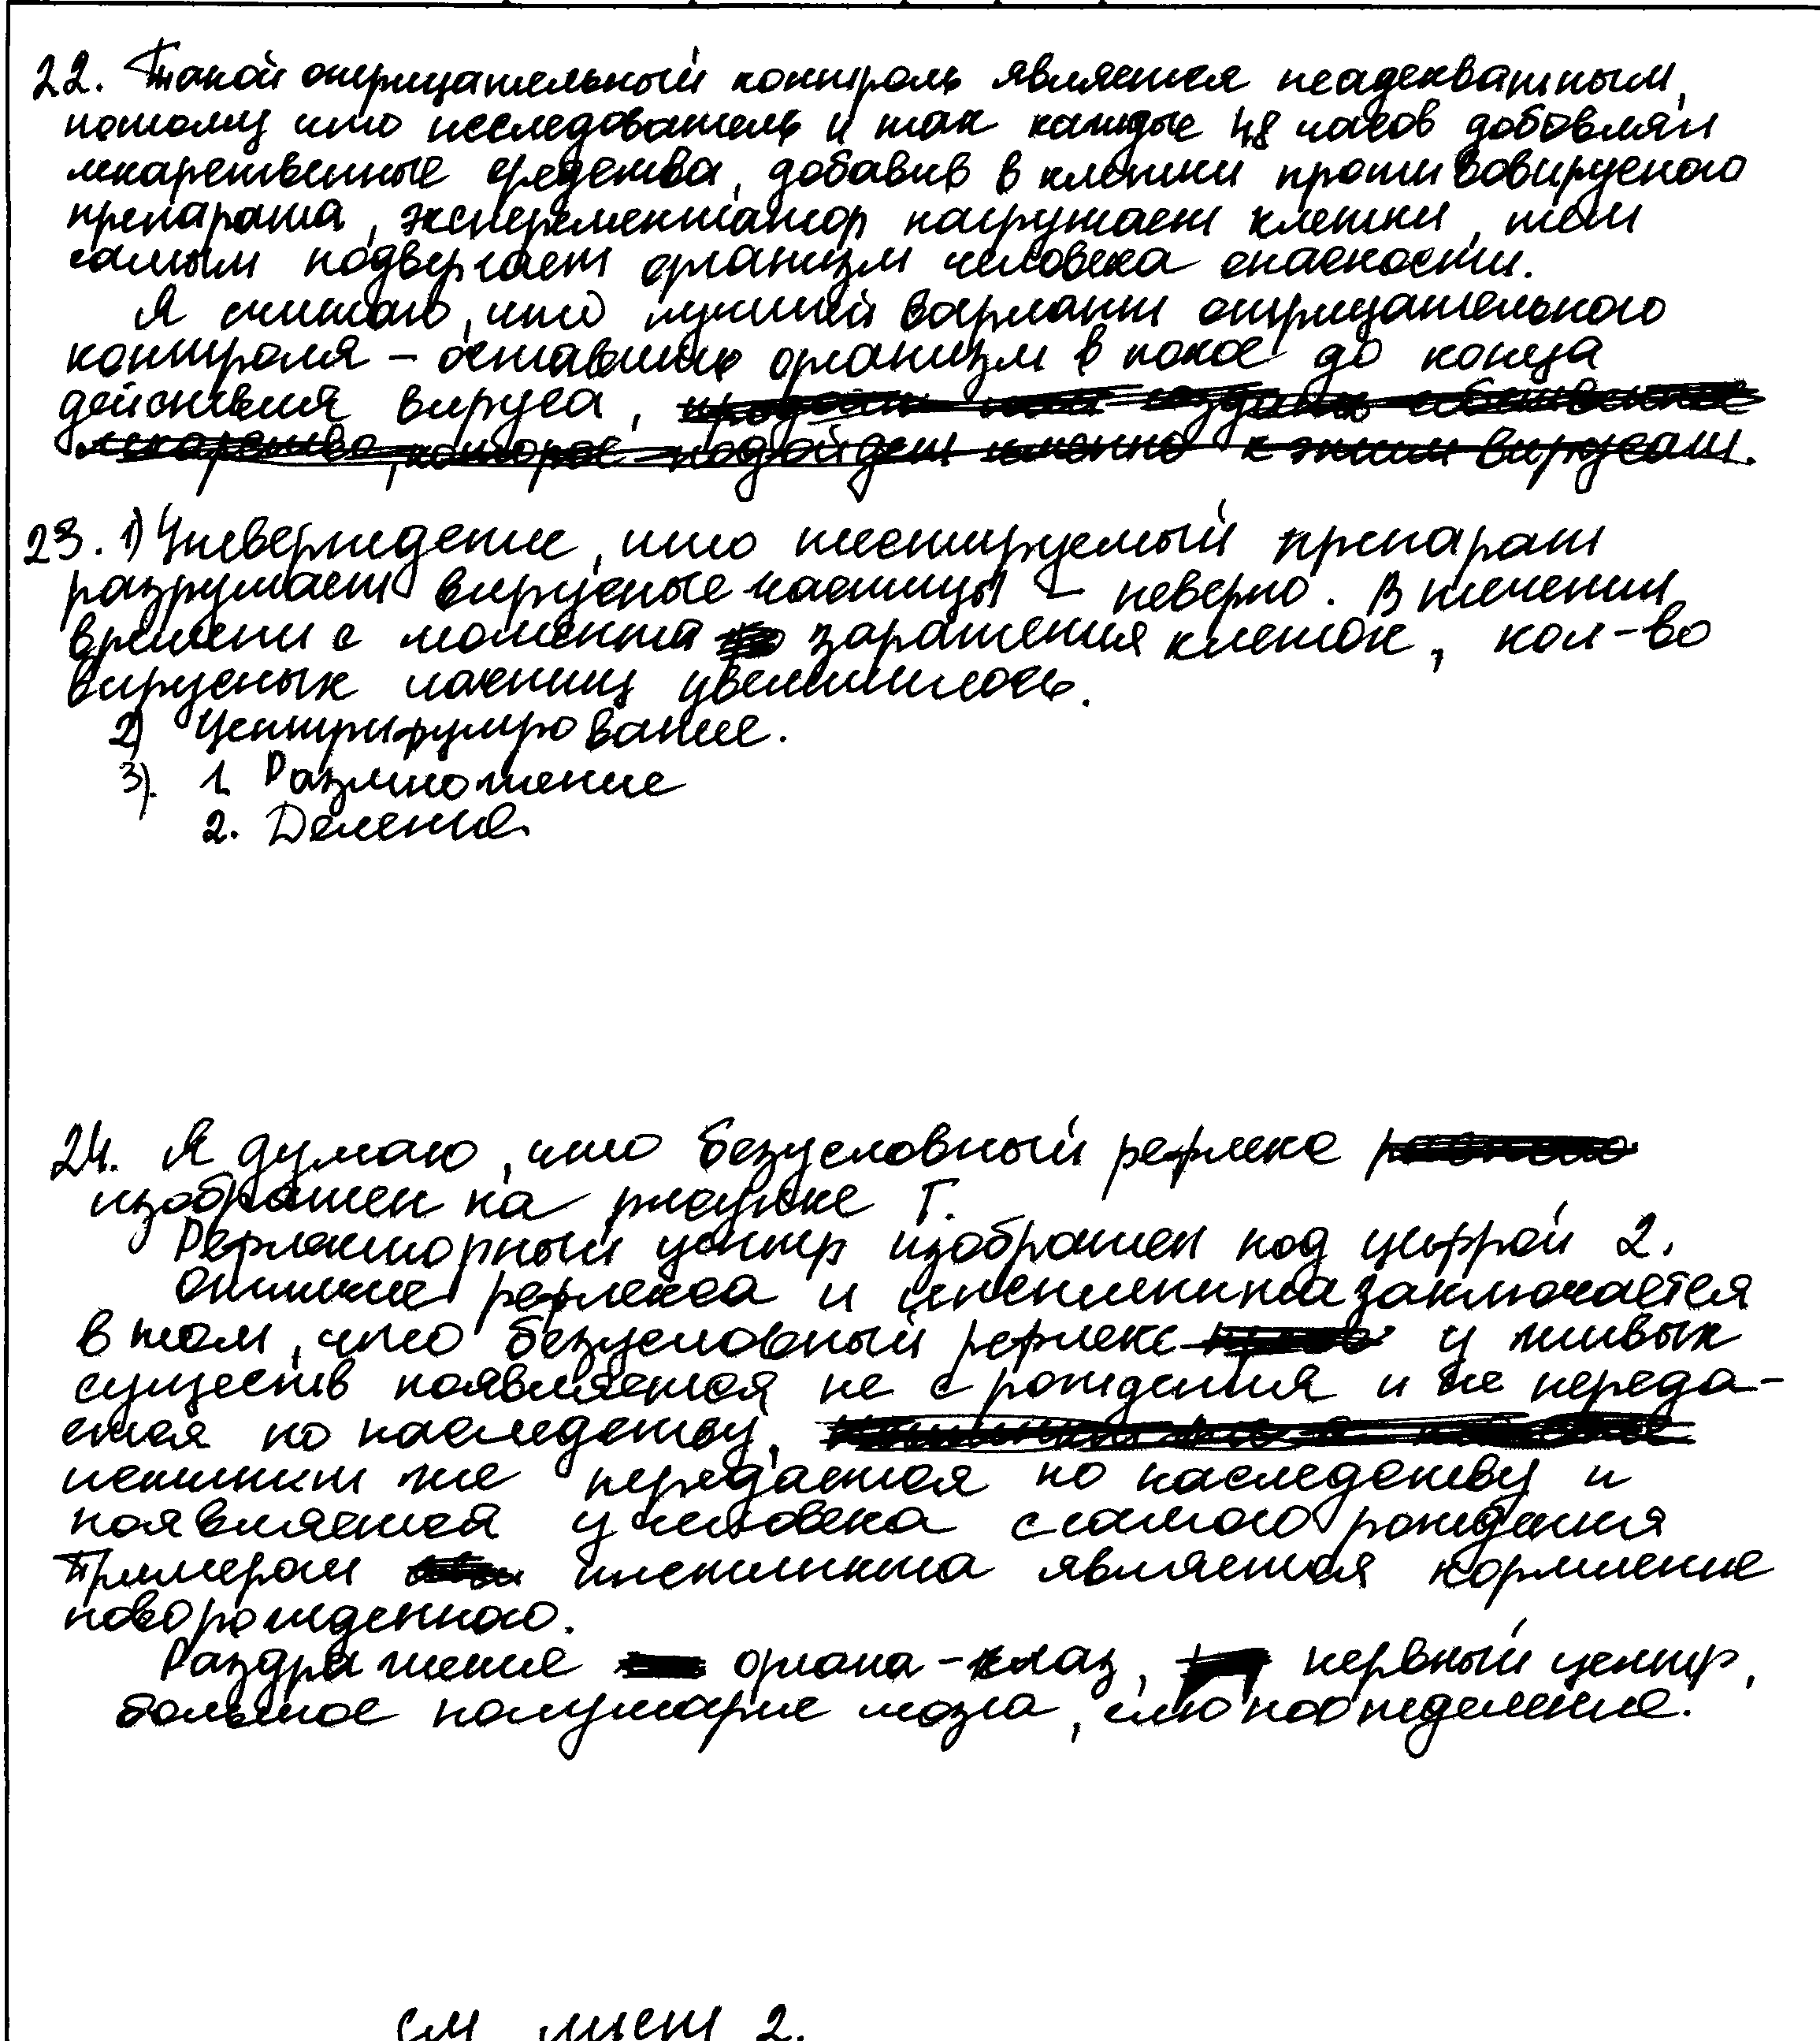 22. Такой отрицательный контроль является неадекватным,
потому что исследователь и так каждые 48 часов добовлял
лекарственные средства, добавив в клетки противовирусного
препарата, эксперементатор нагружает клетки, тем
самым подвергает организм человека опасности.
Я считаю, что лучший вариант отрицательного
контроля - оставить организм в покое до конца
действия вируса,
лекарство, которое подойдет именно к этим вирусам.
23. 1) Утверждение, что тестируемый препарат
разрушает вирусные частицы - неверно. В течении
времени с момента заражения клеток, кол-во
вирусных частиц увеличилось.
2) Центрифугирование.
3). 1. Размножение
2. Деление.
24. Я думаю, что безусловный рефлекс
изображен на рисунке Г.
Рефлекторный центр изображен под цифрой 2.
Отличие рефлекса и инстинкта заключается
в том, что безусловный рефлекс у живых
существ появляется не с рождения и не переда-
ется по наследству,
инстинкт же передается по наследству и
появляется у человека с самого рождения
Примером инстинкта является кормление
новорожденного.
Раздражение органа - глаз, нервный центр,
большое полушарие мозга,
см лист 2.